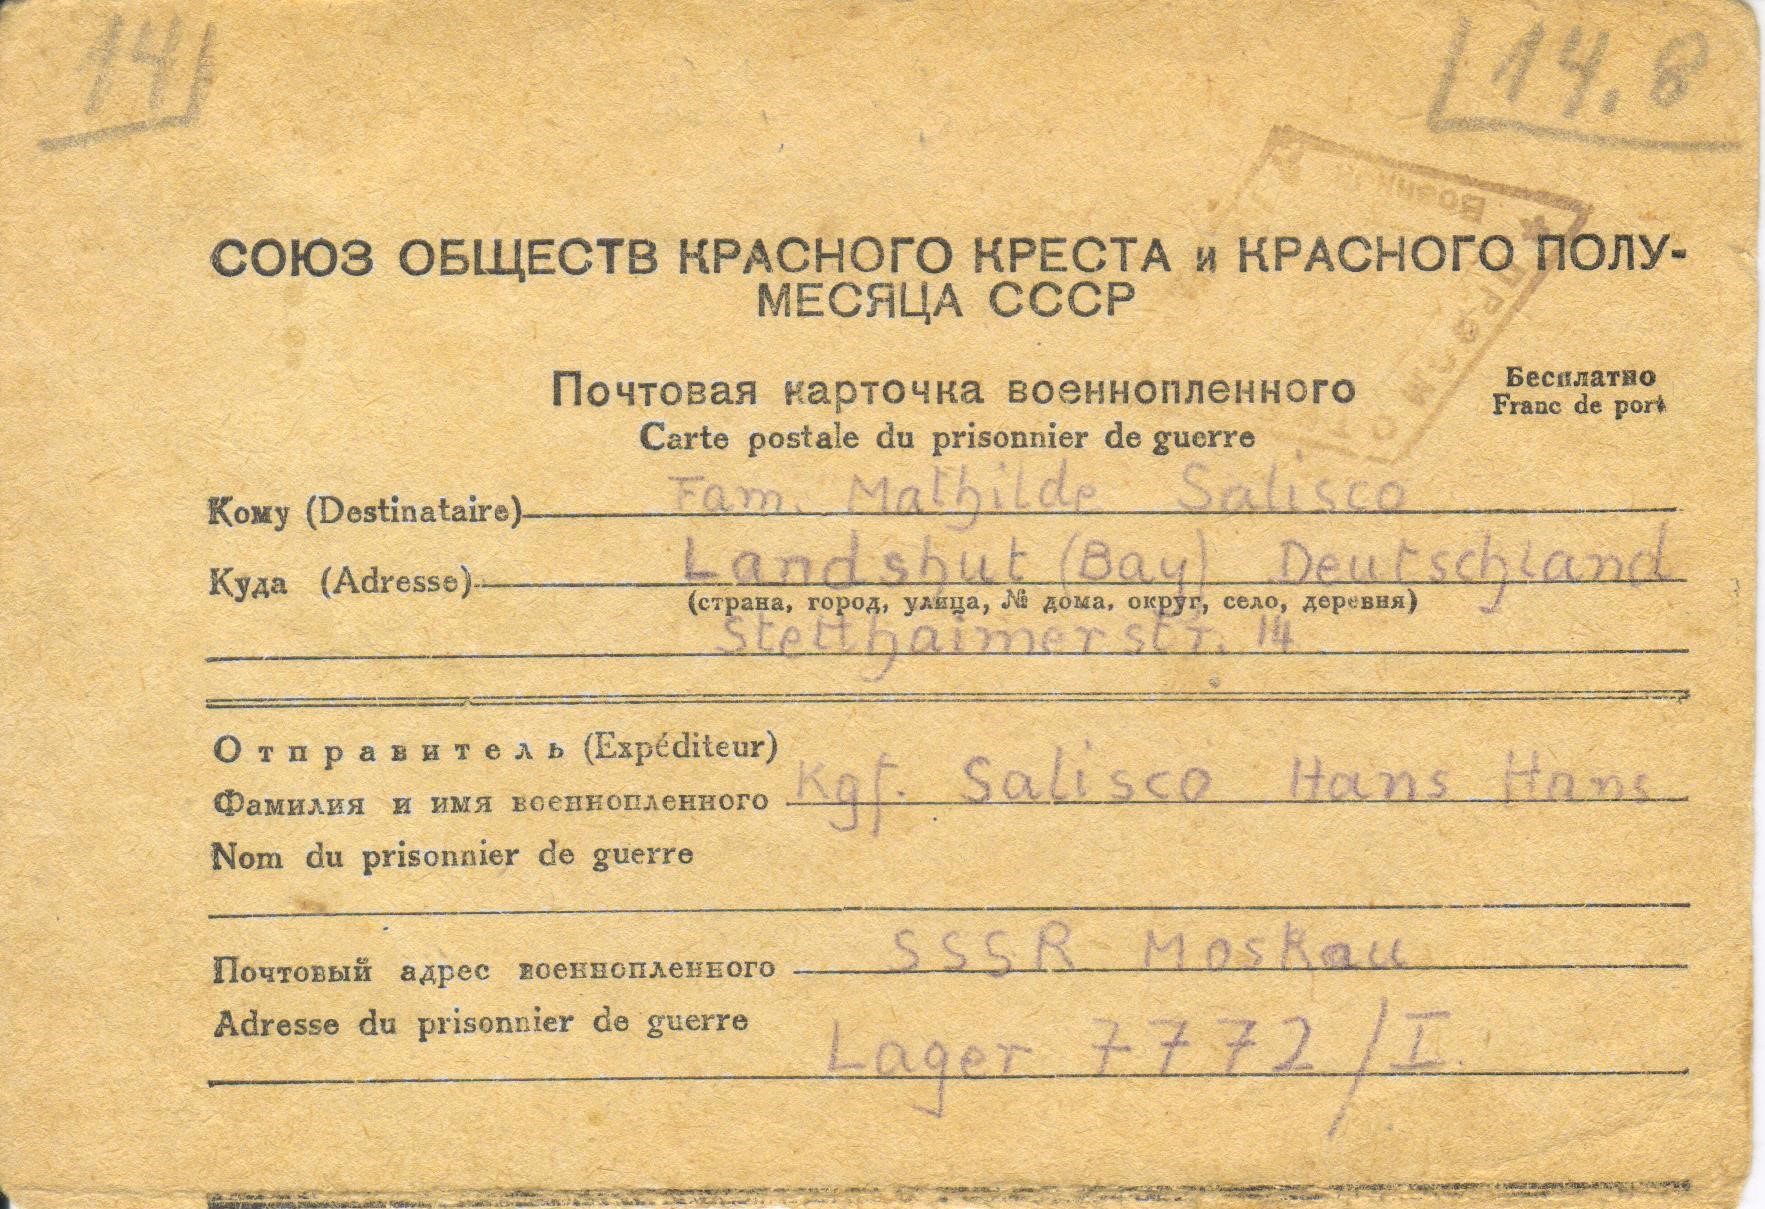 14
14.8
СОЮЗ ОБЩЕСТВ КРАСНОГО КРЕСТА и КРАСНОГО ПОЛУ-
МЕСЯЦА СССР
Почтовая карточка военнопленного
Бесплатно
Carte postale du prisonnier de guerre
Franc de port
Кому (Destinataire) Fam. Mathilde Salisco
Куда (Adresse) Landshut (Bay) Deutschland
(страна, город, улица, № дома, округ, село, деревня)
Stetthaimerstr. 14
Отправитель (Expéditeur)
Фамилия и имя военнопленного Kgf. Salisco Hans Hans
Nom du prisonnier de guerre
Почтовый адрес военнопленного SSSR Moskau
Adresse du prisonnier de guerre
Lager 7772/I.